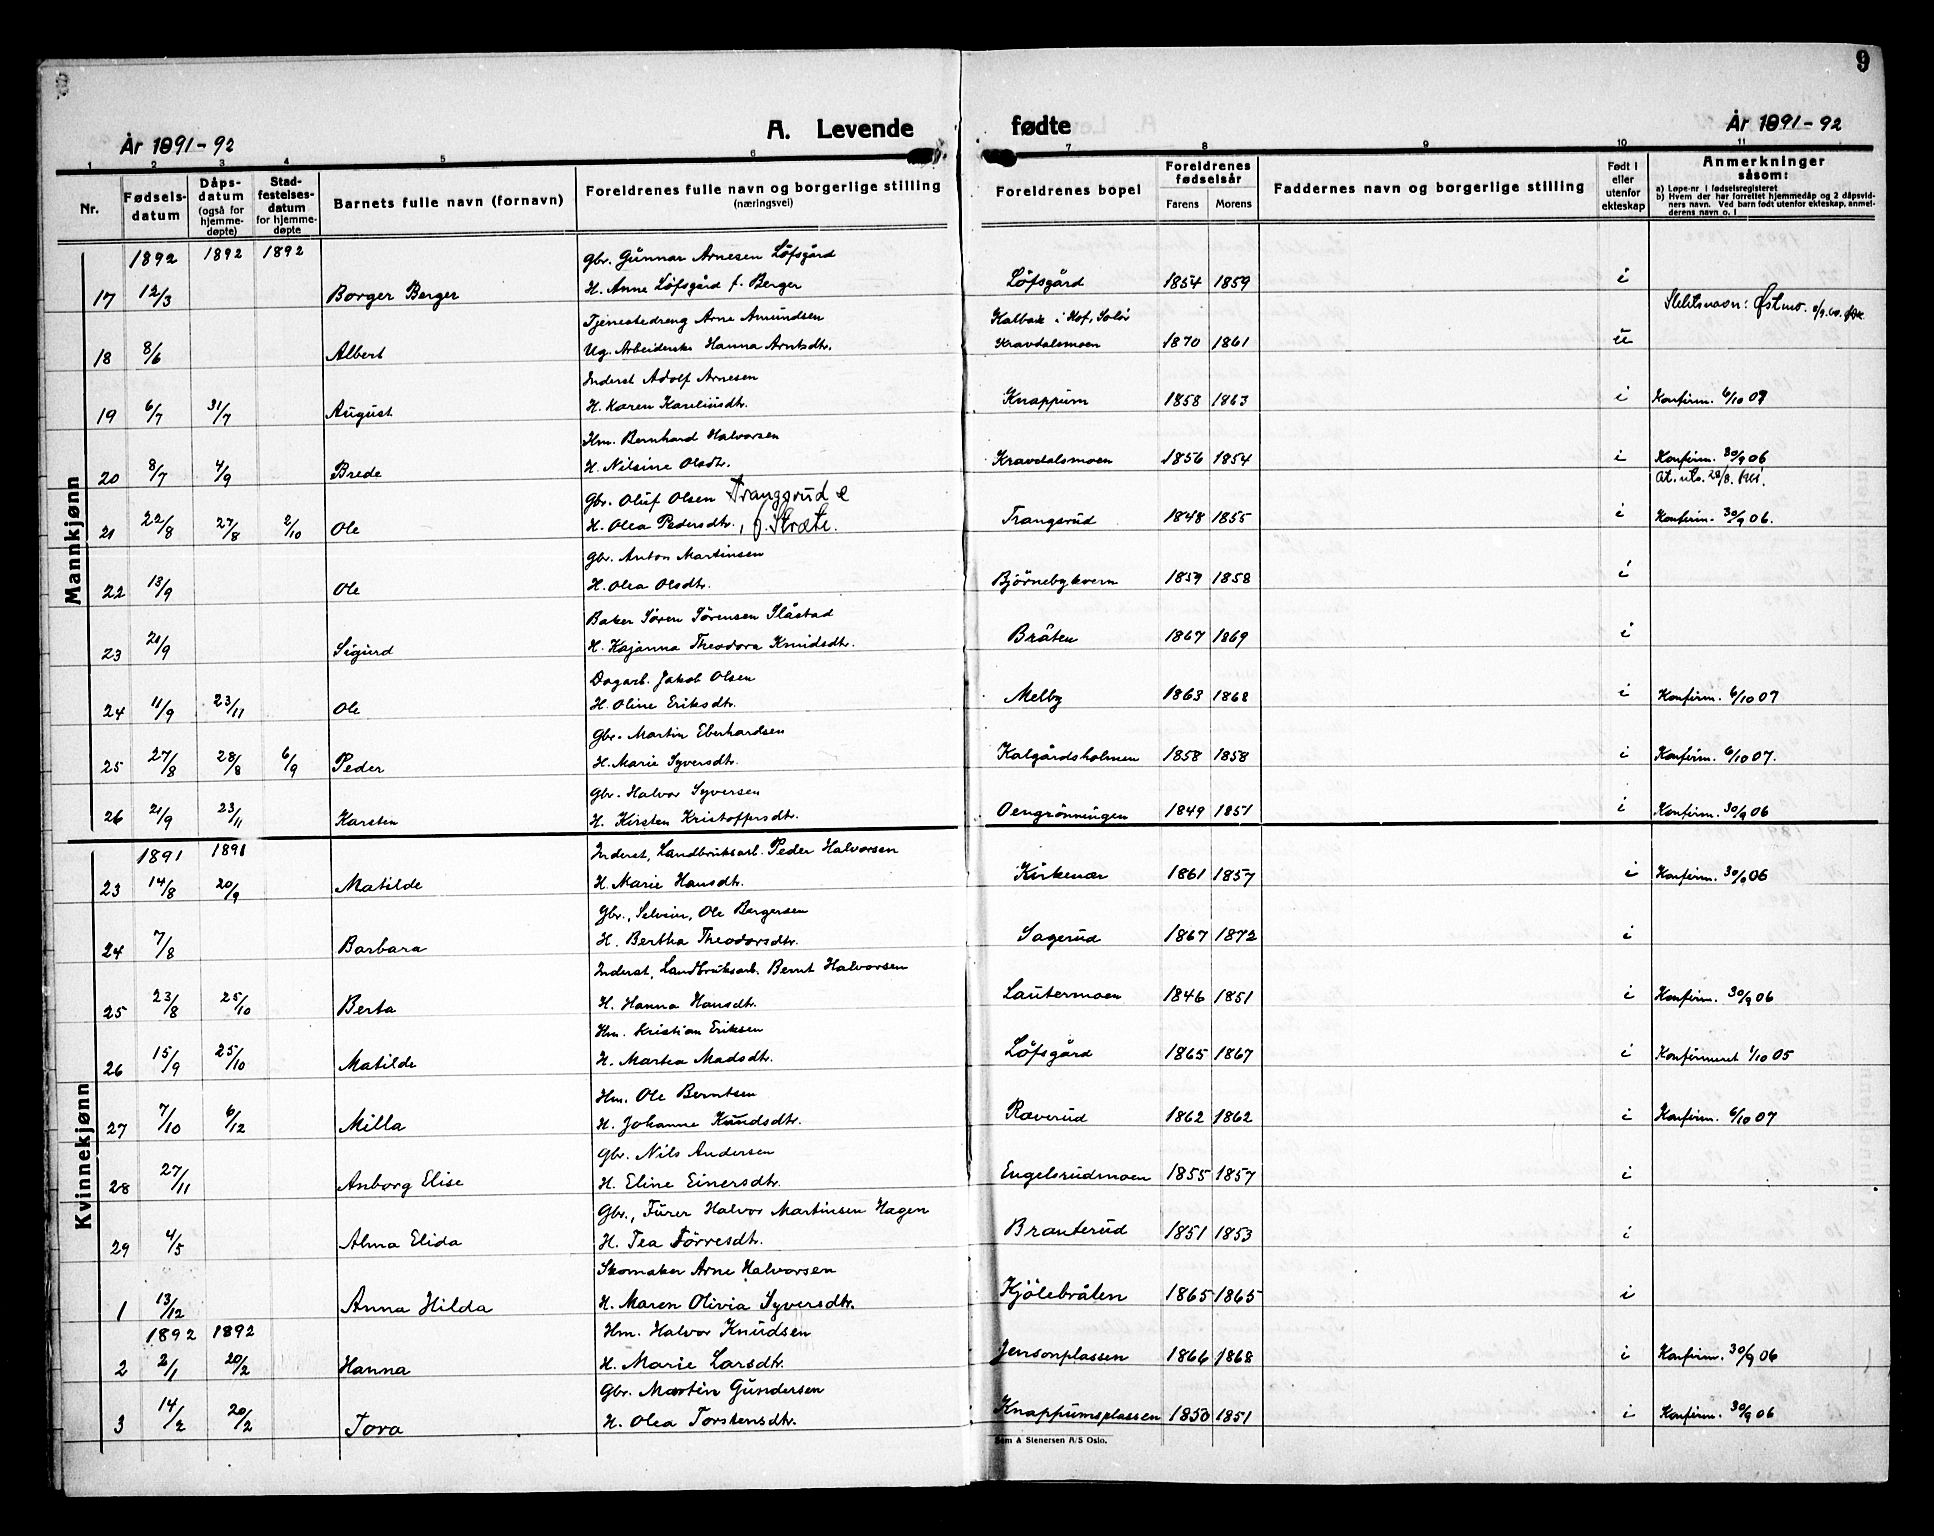 9
År 1891-92
A. Levende
fødte
År 1891-92
1 2 3 4 5 6 7 8 9 10 11
Nr.
Fødsels-
datum
Dåps-
datum
(også for
hjemme-
døpte)
Stad-
festelses-
datum
for hjemme-
døpte
Barnets fulle navn (fornavn)
Foreldrenes fulle navn og borgerlige stilling
(næringsvei)
Foreldrenes bopel
Foreldrenes
fødselsår
Farens Morens
Faddernes navn og borgerlige stilling
Født i
eller
utenfor
ekteskap
Anmerkninger
såsom:
a) Løpe-nr i fødselsregisteret
b) Hvem der har forrettet hjemmedåp og 2 dåpsvid-
ners navn. Ved barn født utenfor ekteskap, anmel-
derens navn o. l
Mannkjønn
1892 1892 1892 Gbr. Gunnar Arnesen Löfsgård
17 12/3 Borger Berger H. Anne Löfsgård f. Berger Löfsgård 1854 1859 i
Slektsnavn: Østmo.
Tjenestedreng Arne Amundsen Kalbak i Hof, Solör
18 8/6 Albert Ug. Arbeiderske Hanna Arntsdtr. Kravdalsmoen 1870 1861 u
Inderst Adolf Arnesen
19 6/7 31/7 August H. Karen Karelinsdtr. Knappum 1858 1863 i Konfirm. 6/10 07
Hm. Bernhard Halvorsen
20 8/7 4/9 Brede H. Nilsine Olsdtr. Kravdalsmoen 1856 1854 i Konfirm. 30/9 06
Gbr. Oluf Olsen Trangsrud e At. uts. 28/8.
21 22/8 27/8 2/10 Ole H. Olea Pedersdtr., f. Stræte. Trangsrud 1848 1855 i Konfirm. 30/9 06.
Gbr. Anton Martinsen
22 13/9 Ole H. Olea Olsdtr. Björnebykvern 1859 1858 i
Baker Sören Sörensen Slåstad
23 21/9 Sigurd H. Kajanna Theodora Knudsdtr. Bråten 1867 1869 i
Dagarb. Jakob Olsen
24 11/9 23/11 Ole H. Oline Eriksdtr. Melby 1863 1868 i Konfirm. 6/10 07
Gbr. Martin Eberhardsen
25 27/8 28/8 6/9 Peder H. Marie Syversdtr. Kalgårdsholmen 1858 1858 i Konfirm. 6/10 07.
Gbr. Halvor Syversen
26 21/9 23/11 Karsten H. Kirsten Kristoffersdtr. Oengrönningen 1849 1851 i Konfirm. 30/9 06
Kvinnekjønn
1891 1891 Inderst, Landbruksarb. Peder Halvorsen
23 14/8 20/9 Matilde H. Marie Hansdtr. Kirkenær 1861 1857 i Konfirm. 30/9 06
Gbr., Selveier, Ole Bergersen
24 7/8 Barbara H. Bertha Theodorsdtr. Sagerud 1867 1872 i
Inderst, Landbruksarb. Bernt Halvorsen
25 23/8 25/10 Berta H. Hanna Hansdtr. Lautermoen 1846 1851 i Konfirm. 30/9 06
Hm. Kristian Eriksen
26 15/9 25/10 Matilde H. Martea Madsdtr. Löfsgård 1865 1867 i Konfirmeret 1/10 05
Hm. Ole Berntsen
27 7/10 6/12 Milla H. Johanne Knudsdtr. Raverud 1862 1862 i Konfirm. 6/10 07
Gbr. Nils Andersen
28 27/11 Anborg Elise H. Eline Einersdtr. Engelsrudmoen 1855 1857 i
Gbr., Furer Halvor Martinsen Hagen
29 4/5 Alma Elida H. Tea Törresdtr. Branterud 1851 1853 i
Skomaker Arne Halvorsen
1 13/12 Anna Hilda H. Maren Olivia Syversdtr. Kjölebråten 1865 1865 i
1892 1892 Hm. Halvor Knudsen
2 2/1 20/2 Hanna H. Marie Larsdtr. Jensonplassen 1866 1868 i Konfirm. 30/9 06
Gbr. Martin Gundersen
3 14/2 20/2 Tora H. Olea Torstensdtr. Knappumsplassen 1850 1851 i Konfirm. 30/9 06
Sem & Stenersen A/S Oslo.